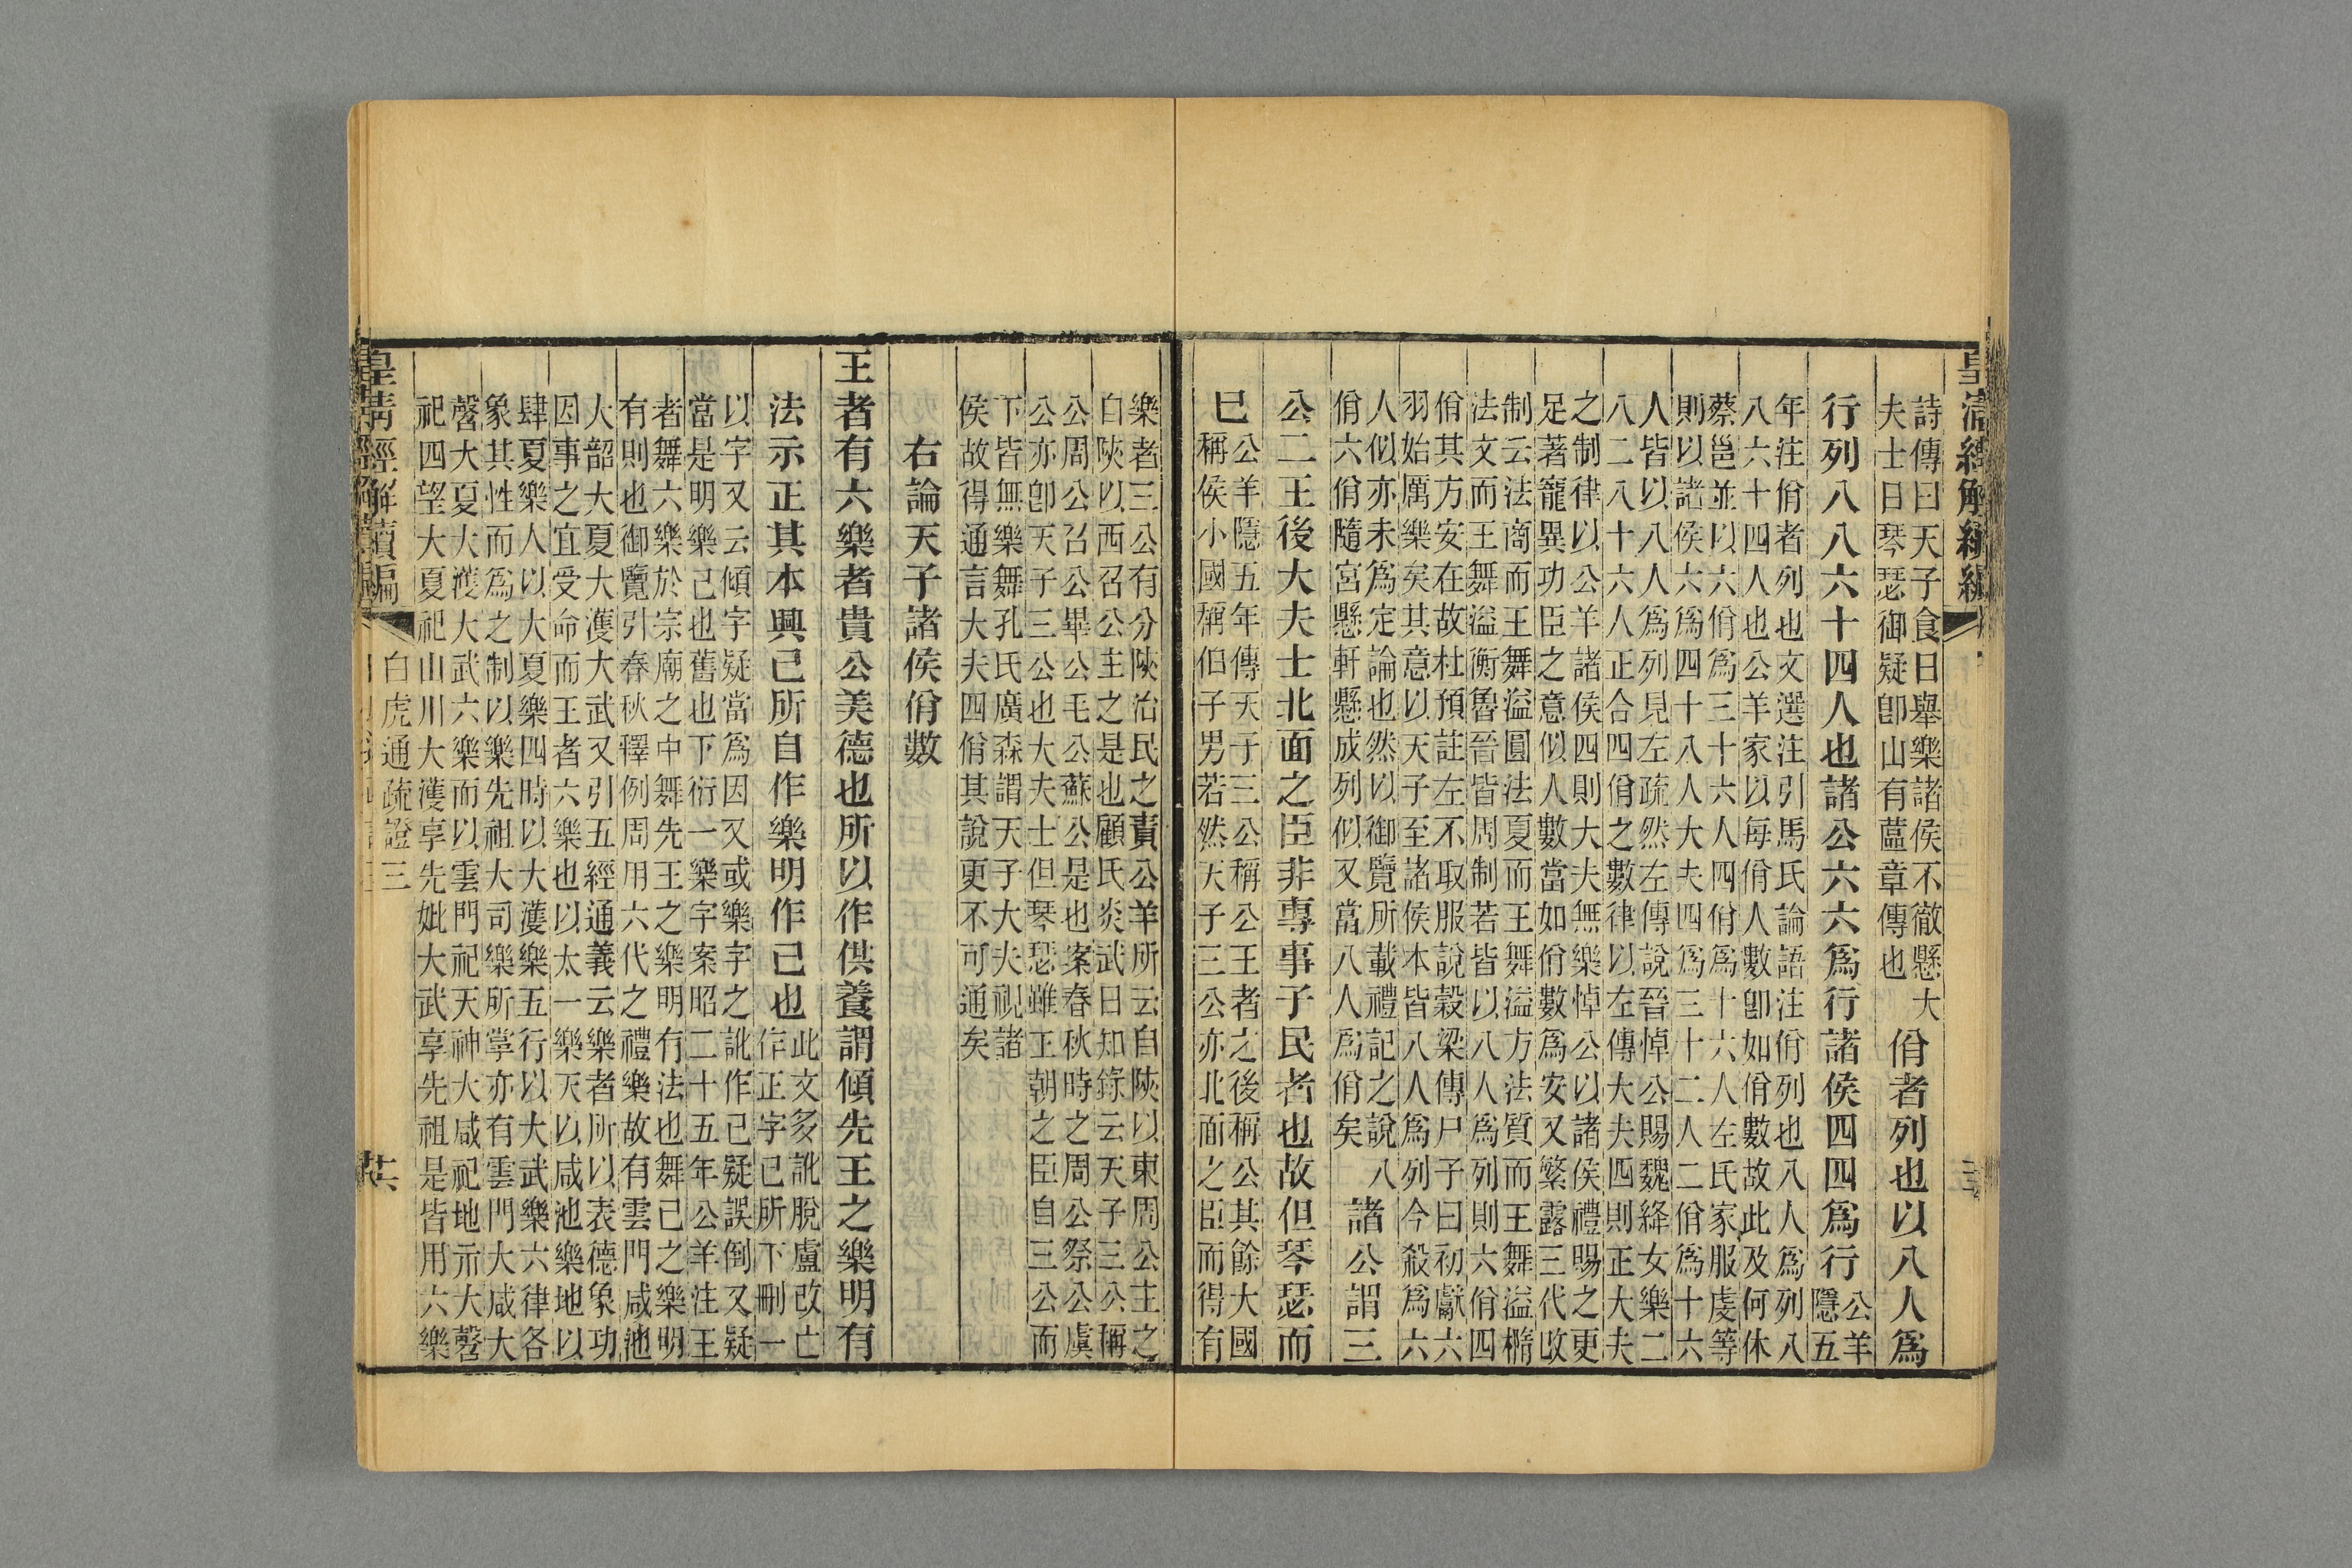 皇清經解續編
詩傳曰天子食日舉樂諸侯不徹懸大
夫士日琴瑟御疑卽山有蓲章傳也
佾者列也以八人爲
行列八八六十四人也諸公六六爲行諸侯四四爲行
公羊
隱五
年注佾者列也文選注引馬氏論語注佾列也八人爲列八
八六十四人也公羊家以每佾人數卽如佾數故此及何休
蔡邕並以六佾爲三十六人四佾爲十六人左氏家服虔等
則以諸侯六爲四十八人大夫四爲三十二人二佾爲十六
人皆以八人爲列見左疏然左傳說晉悼公賜魏絳女樂二
八二八十六人正合四佾之數律以左傳大夫四則正大夫
之制律以公羊諸侯四則大夫無樂悼公以諸侯禮賜之更
足著寵異功臣之意似人數當如佾數爲安又繁露三代改
制云法商而王舞溢圓法夏而王舞溢方法質而王舞溢橢
法文而王舞溢衡魯晉皆周制若皆以八人爲列則六佾四
佾其方安在故杜預註左不取服說穀梁傳尸子曰初獻六
羽始厲樂矣其意以天子至諸侯本皆八人爲列今殺爲六
人似亦未爲定論也然以御覽所載禮記之說八
佾六佾隨宮懸軒懸成列似又當八人爲佾矣
諸公謂三
公二王後大夫士北面之臣非專事子民者也故但琴瑟而
已
公羊隱五年傳天子三公稱公王者之後稱公其餘大國
稱侯小國稱伯子男若然天子三公亦北面之臣而得有
樂者三公有分陝治民之責公羊所云自陝以東周公主之
白陝以西召公主之是也顧氏炎武日知錄云天子三公稱
公周公召公畢公毛公蘇公是也案春秋時之周公祭公虞
公亦卽天子三公也大夫士但琴瑟雖王朝之臣自三公而
下皆無樂舞孔氏廣森謂天子大夫視諸
侯故得通言大夫四佾其說更不可通矣
右論天子諸侯佾數
王者有六樂者貴公美德也所以作供養謂傾先王之樂明有
法示正其本興己所自作樂明作己也
此文多訛脫盧改亡
作正字已所下刪一
以字又云傾字疑當爲因又或樂字之訛作己疑誤倒又疑
當是明樂己也舊也下衍一樂字案昭二十五年公羊注王
者舞六樂於宗廟之中舞先王之樂明有法也舞己之樂明
有則也御覽引春秋釋例周用六代之禮樂故有雲門咸池
大韶大夏大濩大武又引五經通義云樂者所以表德象功
因事之宜受命而王者六樂也以太一樂天以咸池樂地以
肆夏樂人以大夏樂四時以大濩樂五行以大武樂六律各
象其性而爲之制以樂先祖大司樂所掌亦有雲門大咸大
磬大夏大濩大武六樂而以雲門祀天神大咸祀地示大磬
祀四望大夏祀山川大濩享先妣大武享先祖是皆用六樂
皇清經解續編
白虎通疏證三